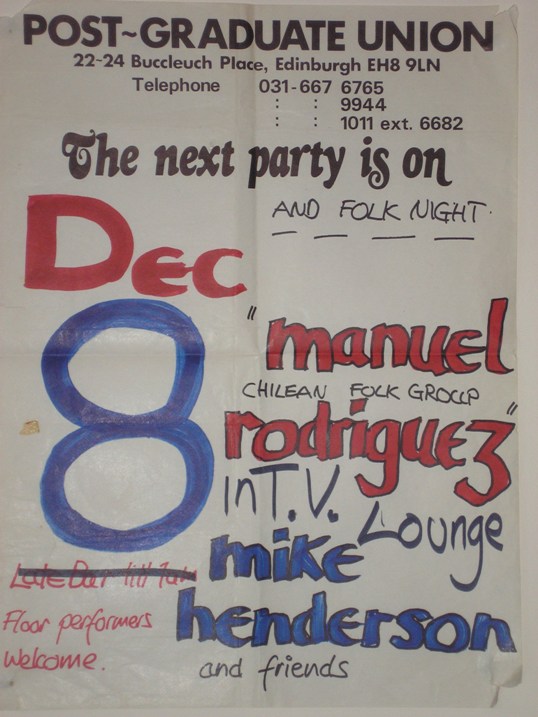 POST~GRADUATE UNION
22-24 Buccleuch Place, Edinburgh EH8 9LN
Telephone 031-667 6765
: : 9944
: : 1011 ext. 6682
The next party is on
AND FOLK NIGHT.
Dec
8
"manuel
CHILEAN FOLK GROUP
rodriguez"
in T.V. Lounge
mike
Late Bar till 1am
henderson
Floor performers
welcome.
and friends